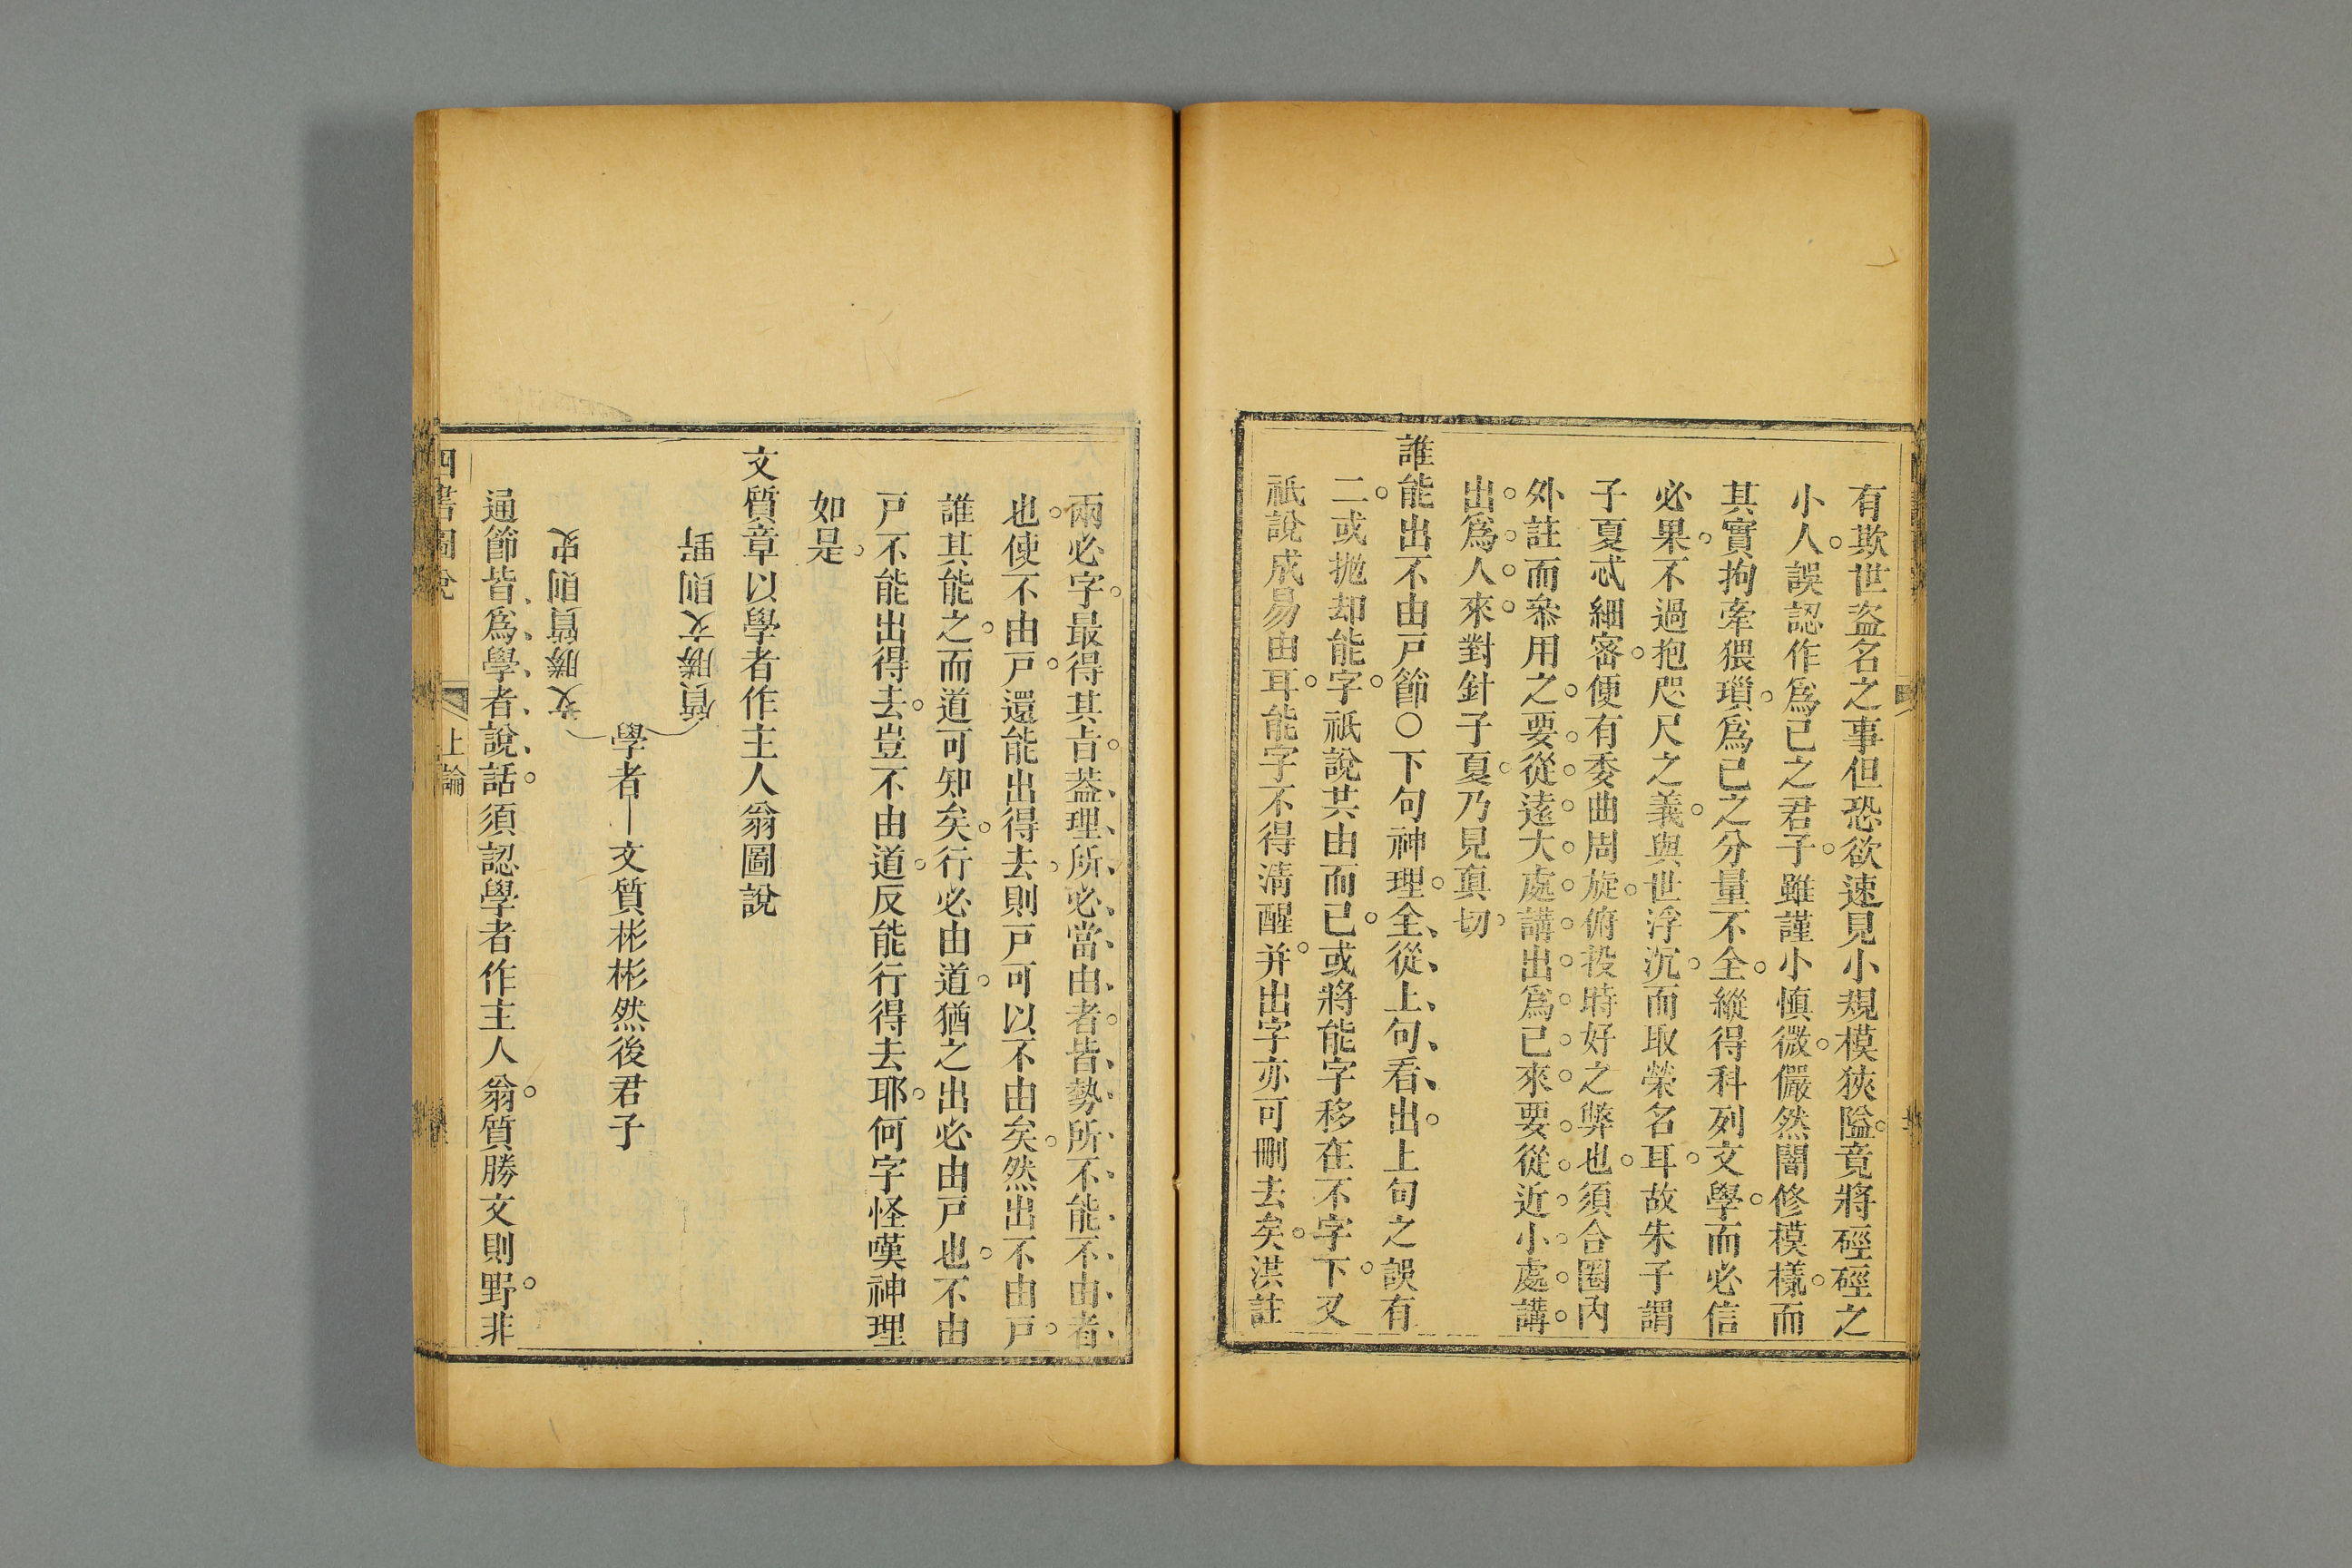 有欺世盜名之事但恐欲速見小規模狹隘竟將硜硜之
小人誤認作爲己之君子雖謹小慎微儼然闇修模樣而
其實拘牽猥瑣爲己之分量不全縱得科列文學而必信
必果不過抱咫尺之義與世浮沉而取榮名耳故朱子謂
子夏忒細密便有委曲周旋俯投時好之弊也須合圈內
外註而叅用之要從遠大處講出爲己來要從近小處講
出爲人來對針子夏乃見真切
誰能出不由戸節〇下句神理全從上句看出上句之誤有
二或拋却能字祇說其由而已或將能字移在不字下又
祇說成易由耳能字不得清醒并出字亦可刪去矣洪註
兩必字最得其㫖葢理所必當由者皆勢所不能不由者
也使不由戸還能出得去則戸可以不由矣然出不由戸
誰其能之而道可知矣行必由道猶之出必由戸也不由
戸不能出得去豈不由道反能行得去耶何字怪嘆神理
如是
文質章以學者作主人翁圖說
質勝文則野
學者—文質彬彬然後君子
文勝質則史
通節皆爲學者說話須認學者作主人翁質勝文則野非
四書圖說
上論